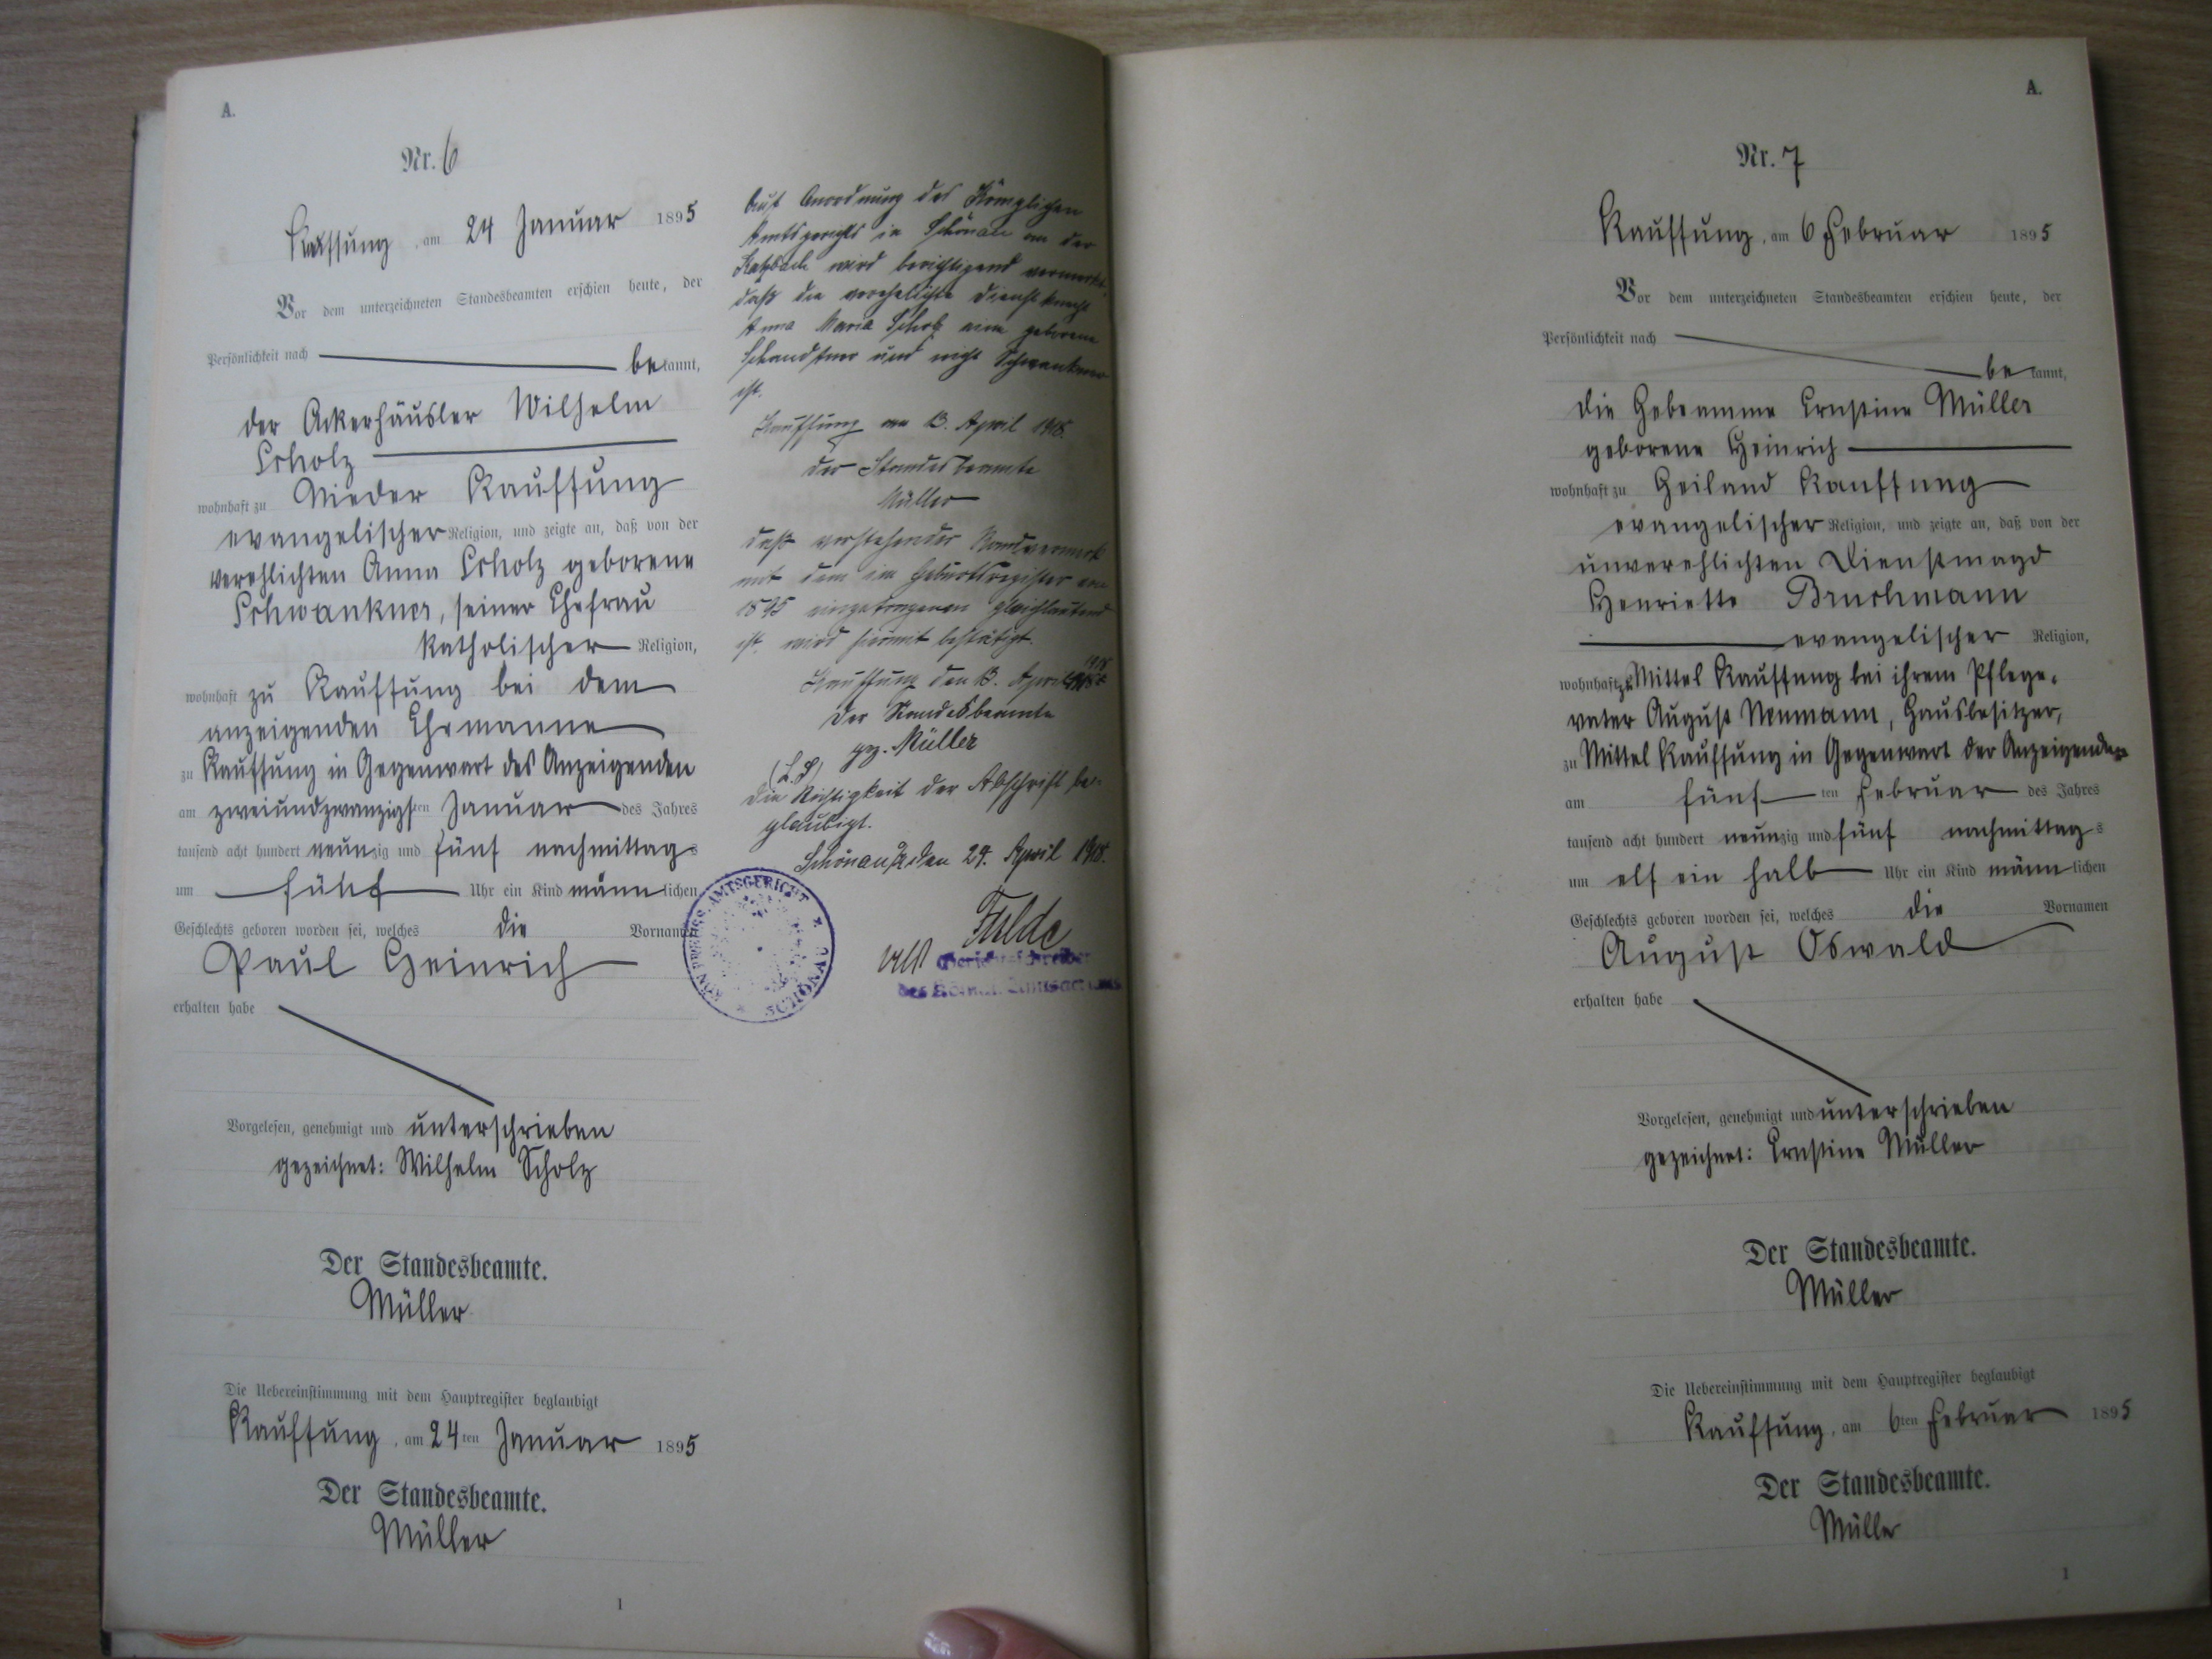 A.
Nr. 6
Kauffung, am 24 Januar 1895
Vor dem unterzeichneten Standesbeamten erschien heute, der
Persönlichkeit nach
bekannt,
der Ackerhäusler Wilhelm
Scholz
wohnhaft zu Nieder Kauffung
evangelischer Religion, und zeigte an, daß von der
verehlichten Anna Scholz geborene
Schwankner, seiner Ehefrau
katholischer Religion,
wohnhaft zu Kauffung bei dem
anzeigenden Ehemanne
zu Kauffung in Gegenwart des Anzeigenden
am zweiundzwanzigsten Januar des Jahres
tausend acht hundert neunzig und fünf nachmittags
um fünf Uhr ein Kind männlichen
Geschlechts geboren worden sei, welches die Vornamen
Paul Heinrich
erhalten habe
Vorgelesen, genehmigt und unterschrieben
gezeichnet: Wilhelm Scholz
Der Standesbeamte.
Müller
Die Uebereinstimmung mit dem Hauptregister beglaubigt
Kauffung, am 24ten Januar 1895
Der Standesbeamte.
Müller
1
Auf Anordnung des Königlichen
Amtsgerichts in Schönau an der
Katzbach wird berichtigend vermerkt,
daß die verehelichte Dienstknecht
Anna Maria Scholz eine geborene
und nicht Schwankner
ist.
Kauffung am 13. April 1918.
Der Standesbeamte
Müller
Daß vorstehender Randvermerk
mit dem im Geburtsregister von
1895 eingetragenen gleichlautend
ist, wird hiermit bestätigt.
Kauffung den 13. April 1918
Der Standesbeamte
(L.S) gez. Müller
Die Richtigkeit der Abschrift be-
glaubigt.
Schönau a/K, den 24. April 1918.
Fulde
Gerichtsschreiber
des Königl. Amtsgerichts
KÖN. PREUSS. AMTSGERICHT * SCHÖNAU *
A.
Nr. 7
Kauffung, am 6 Februar 1895
Vor dem unterzeichneten Standesbeamten erschien heute, der
Persönlichkeit nach
bekannt,
die Hebeamme Ernstine Müller
geborene Heinrich
wohnhaft zu Heiland Kauffung
evangelischer Religion, und zeigte an, daß von der
unverehlichten Dienstmagd
Henriette Bruchmann
evangelischer Religion,
wohnhaft zu Mittel Kauffung bei ihrem Pflege-
vater August Neumann, Hausbesitzer,
zu Mittel Kauffung in Gegenwart der Anzeigenden
am fünften Februar des Jahres
tausend acht hundert neunzig und fünf nachmittags
um elf ein halb Uhr ein Kind männlichen
Geschlechts geboren worden sei, welches die Vornamen
August Oswald
erhalten habe
Vorgelesen, genehmigt und unterschrieben
gezeichnet: Ernstine Müller
Der Standesbeamte.
Müller
Die Uebereinstimmung mit dem Hauptregister beglaubigt
Kauffung, am 6ten Februar 1895
Der Standesbeamte.
Müller
1